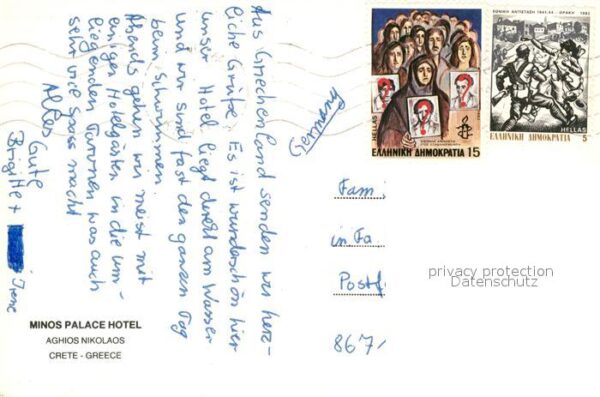 Aus Griechenland senden wir herz-
liche Grüße. Es ist wunderschön hier
unser Hotel liegt direkt am Wasser
und wir sind fast den ganzen Tag
beim Schwimmen.
Abends gehen wir meist mit
einigen Hotelgästen in die um-
liegenden Tavernen was auch
sehr viel Spass macht
Alles Gute
Brigitte +
Irene
MINOS PALACE HOTEL
AGHIOS NIKOLAOS
CRETE - GREECE
Germany
HELLAS
ΕΛΛΗΝΙΚΗ ΔΗΜΟΚΡΑΤΙΑ 15
ΕΘΝΙΚΗ ΑΝΤΙΣΤΑΣΗ 1941-44 - ΘΡΑΚΗ 1982
HELLAS
ΕΛΛΗΝΙΚΗ ΔΗΜΟΚΡΑΤΙΑ 5
Fam.
in Fa
Postf.
867
privacy protection
Datenschutz